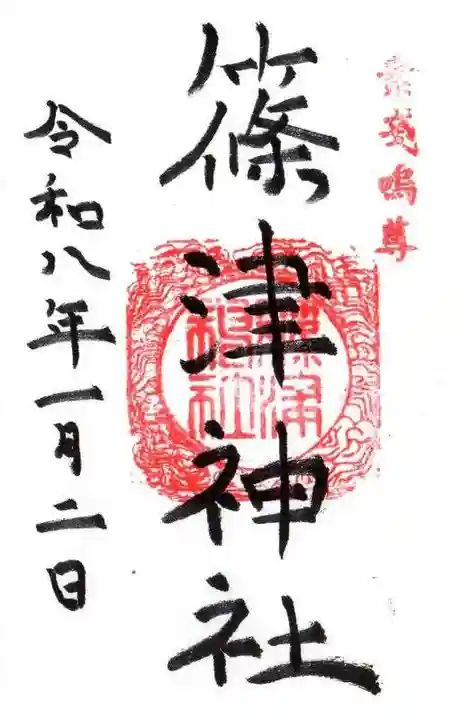 素戔嗚尊
篠津神社
令和八年一月二日